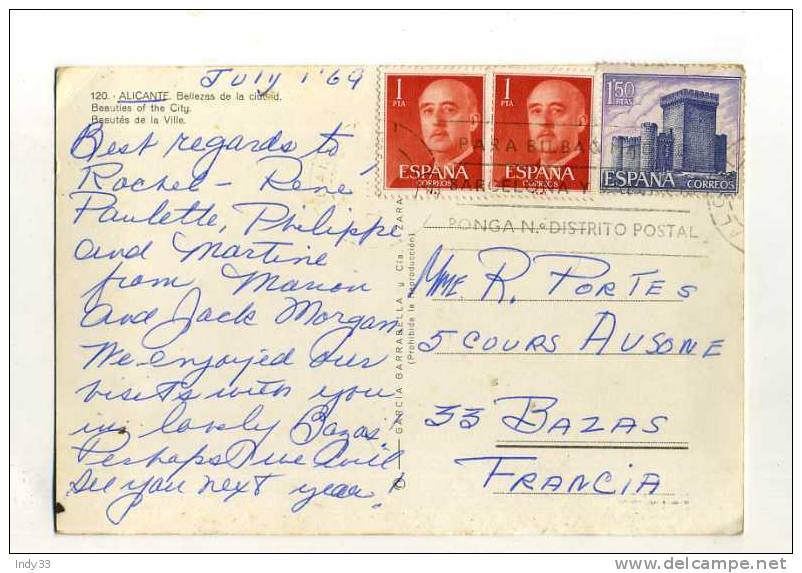 July 1'69
120.- ALICANTE. Bellezas de la ciudad.
Beauties of the City.
Beautés de la Ville.
Best regards to
Rachel - Rene
Paulette, Philippe
and Martine
from Marion
and Jack Morgan
We enjoyed our
visits with you
in lovely Bazas!
Perhaps we will
see you next year!
GARCIA GARRABELLA y Cía.
(Prohibida la Reproducción)
1
PTA
ESPAÑA
CORREOS
1
PTA
ESPAÑA
CORREOS
1'50
PTAS
ESPAÑA
CORREOS
PARA BILBAO
BARCELONA Y
PONGA N.º DISTRITO POSTAL
Mme. R. PORTES
5 COURS AUSONE
33 BAZAS
FRANCIA
Indy33
delcampe.net